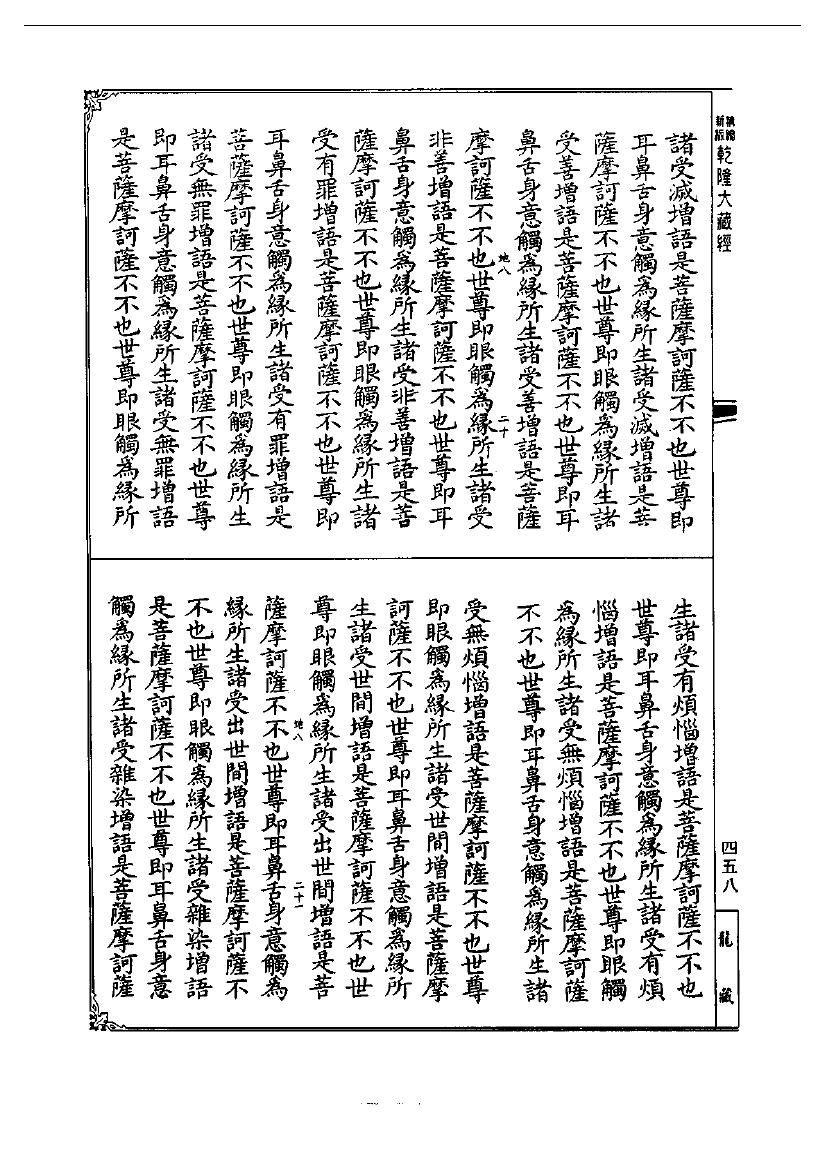 乾隆大藏經
諸受減增語是菩薩摩訶薩不不也世尊即
耳鼻舌身意觸爲緣所生諸受減增語是菩
薩摩訶薩不不也世尊即眼觸爲緣所生諸
受善增語是菩薩摩訶薩不不也世尊即耳
鼻舌身意觸爲緣所生諸受善增語是菩薩
地八 二十
摩訶薩不不也世尊即眼觸爲緣所生諸受
非善增語是菩薩摩訶薩不不也世尊即耳
鼻舌身意觸爲緣所生諸受非善增語是菩
薩摩訶薩不不也世尊即眼觸爲緣所生諸
受有罪增語是菩薩摩訶薩不不也世尊即
耳鼻舌身意觸爲緣所生諸受有罪增語是
菩薩摩訶薩不不也世尊即眼觸爲緣所生
諸受無罪增語是菩薩摩訶薩不不也世尊
即耳鼻舌身意觸爲緣所生諸受無罪增語
是菩薩摩訶薩不不也世尊即眼觸爲緣所
生諸受有煩惱增語是菩薩摩訶薩不不也
世尊即耳鼻舌身意觸爲緣所生諸受有煩
惱增語是菩薩摩訶薩不不也世尊即眼觸
爲緣所生諸受無煩惱增語是菩薩摩訶薩
不不也世尊即耳鼻舌身意觸爲緣所生諸
受無煩惱增語是菩薩摩訶薩不不也世尊
即眼觸爲緣所生諸受世間增語是菩薩摩
訶薩不不也世尊即耳鼻舌身意觸爲緣所
生諸受世間增語是菩薩摩訶薩不不也世
尊即眼觸爲緣所生諸受出世間增語是菩
地八 二十一
薩摩訶薩不不也世尊即耳鼻舌身意觸爲
緣所生諸受出世間增語是菩薩摩訶薩不
不也世尊即眼觸爲緣所生諸受雜染增語
是菩薩摩訶薩不不也世尊即耳鼻舌身意
觸爲緣所生諸受雜染增語是菩薩摩訶薩
四五八
龍藏